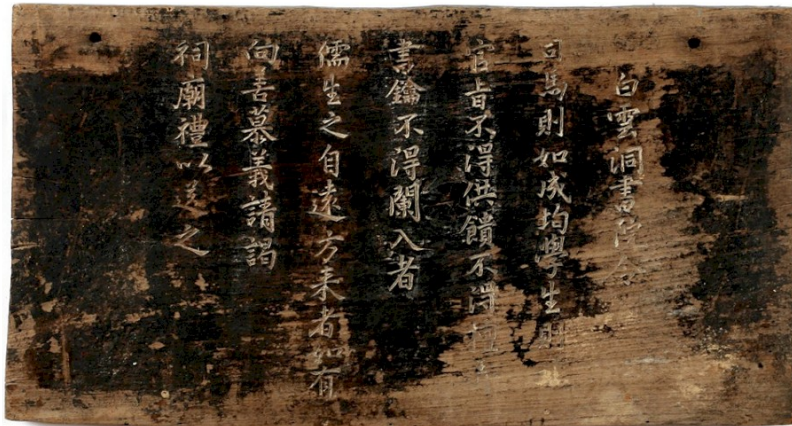 白雲洞書院令
司馬則如成均學生則
官皆不得供饋不得
書鑰不得闌入者
儒生之自遠方来者如有
向善慕義請謁
祠廟禮以送之